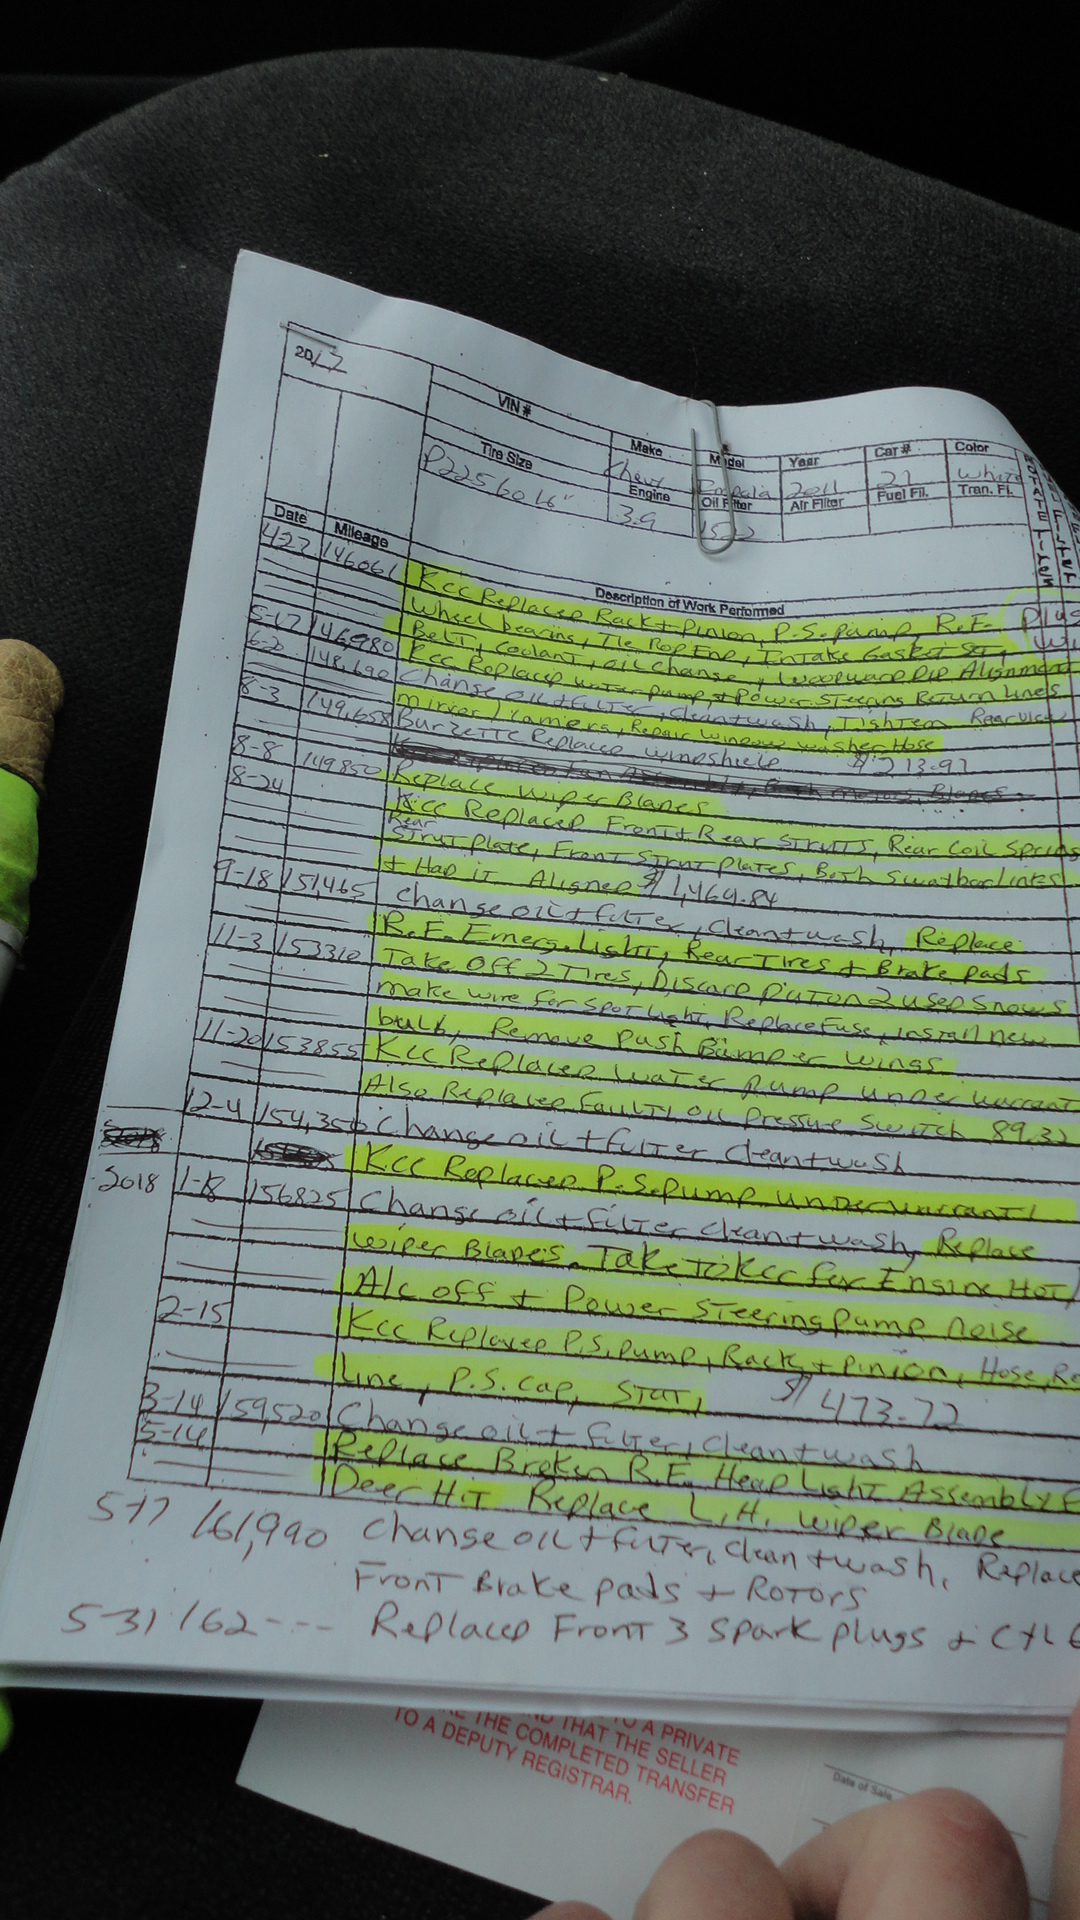 2017
VIN #
Tire Size
Make
Model
Year
Car #
Color
P22560 16"
Chevy
Impala
2011
27
White
Engine
Oil Filter
Air Filter
Fuel Fil.
Tran. Fi.
3.9
1522
ROTATE TIRES
Date Mileage Description of Work Performed
4-27 146061 KCC Replaced Rack + Pinion, P.S. Pump, R.F. Plus
Wheel bearing, Tie Rod End, Intake Gasket Set,
Belt, Coolant, oil change, Woodward DID Alignment
5-17 146,980 KCC Replaced waterpump + Power Steering Return Lines
6-20 148,690 Change oil + filter, clean + wash, Tighten Rearview
mirror/camera, Repair window washer Hose
8-3 149,658 Burzette Replaced windshield $213.97
8-8 149850 Replace wiper Blades
8-24 KCC Replaced Front + Rear Struts, Rear Coil Springs
Rear
Strut plate, Front Strut plates, Both Swaybar links
+ Had it Aligned $1,464.84
9-18 151,465 Change oil + filter, clean + wash, Replace
R.F. Emerg. Light, Rear Tires + Brake pads
11-3 153310 Take Off 2 Tires, Discard put on 2 used snows
make wire for spotlight, Replace Fuse, install new
bulb, Remove Push Bumper wings
11-20 153855 KCC Replaced water pump under warrant
Also Replaced Faulty oil pressure switch 89.32
12-4 154,350 Change oil + filter clean + wash
KCC Replaced P.S. pump under warranty
2018 1-18 156825 Change oil + filter clean + wash, Replace
wiper Blades. Take to KCC for Engine Hot/
A/C off + Power Steering pump noise
2-15 KCC Replaced P.S. pump, Rack + pinion, Hose, Re
Line, P.S. cap, Stat, $1473.72
3-14 159520 Change oil + filter, clean + wash
5-14 Replace Broken R.F. Head Light Assembly
Deer Hit Replace L.H. wiper Blade
5-17 161,990 Change oil + filter, clean + wash, Replace
Front Brake pads + Rotors
5-31 162--- Replaced Front 3 spark plugs +
TO A PRIVATE
AND THAT THE SELLER
THE COMPLETED TRANSFER
TO A DEPUTY REGISTRAR.
Date of Sale